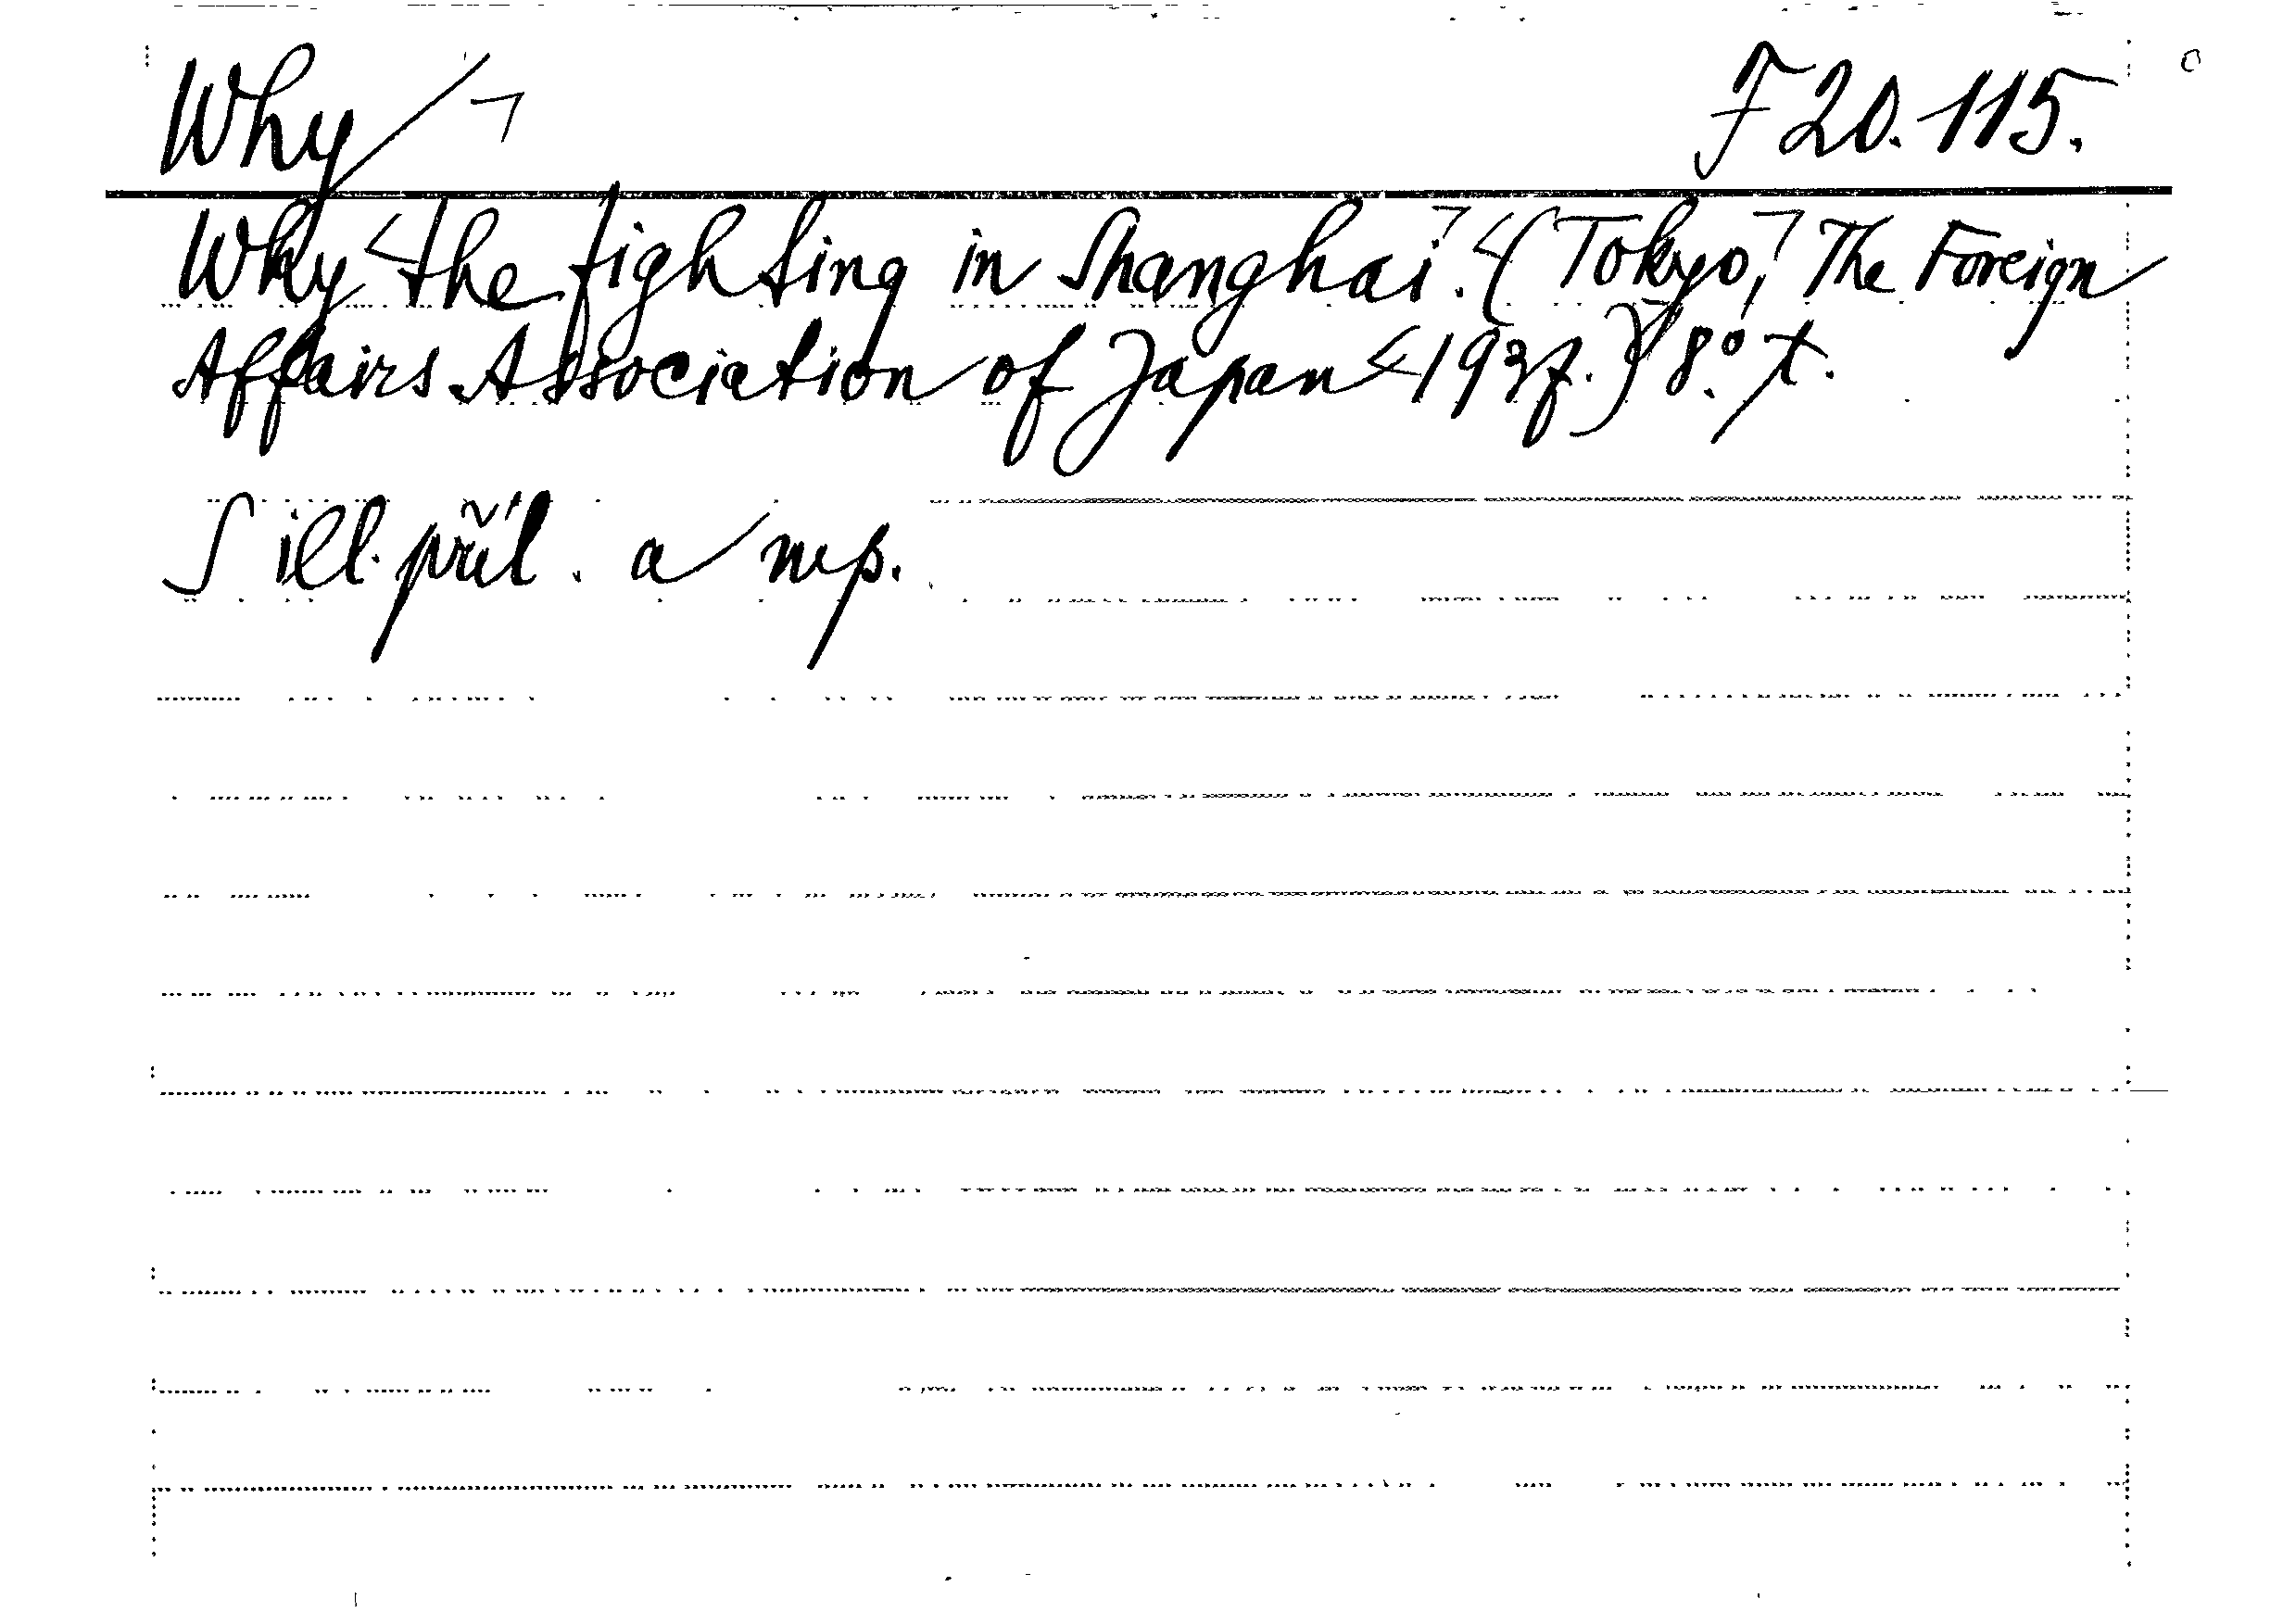 Why F 20.115.
Why the fighting in Shanghai. (Tokyo, The Foreign
Affairs Association of Japan 1937.) 8° X.
S ill. příl. a mp.